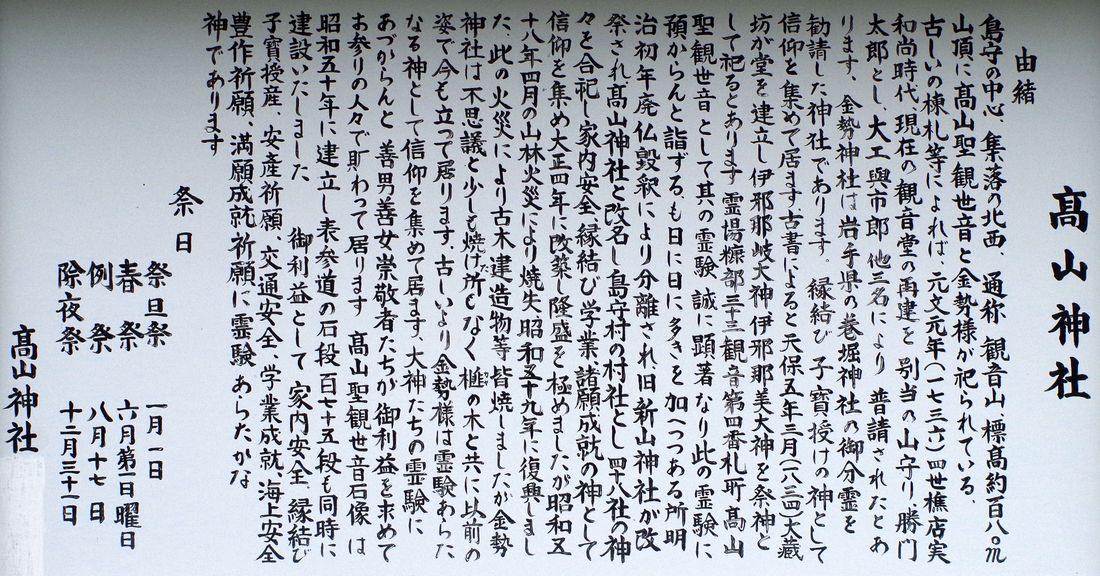 高山神社
由緒
島守の中心、集落の北西、通称、観音山、標高約百八〇m
山頂に高山聖観世音と金勢様が祀られている。
古しいの棟札等によれば、元文元年(一七三六)四世樵店実
和尚時代、現在の観音堂の再建を 別当の山守り、勝門
太郎とし、大工與市郎 他三名により 普請されたとあ
ります、金勢神社は岩手県の巻堀神社の御分霊を
勧請した神社であります。縁結び 子寶授けの神として
信仰を集めて居ます、古書によると天保五年三月(一八三四)大蔵
坊が堂を建立し伊邪那岐大神 伊邪那美大神を祭神と
して祀るとあります 霊場糠部三十三観音第四番札所高山
聖観世音として其の霊験 誠に顕著なり此の霊験に
預からんと詣ずるも日に日に多きを加へつつある所明
治初年廃仏毀釈により分離され、旧新山神社が改
祭され、高山神社と改名し島守村の村社とし四十八社の神
々を合祀し家内安全、縁結び学業諸願成就の神として
信仰を集め大正四年に改築し隆盛を極めましたが昭和五
十八年四月の山林火災により焼失昭和五十九年に復興しまし
た、此の火災により古木、建造物等皆焼しましたが金勢
神社は不思議と少しも焼けた所もなく榧の木と共に以前の
姿で今も立って居ります、古しいより金勢様は霊験あらた
なる神として信仰を集めて居ます、大神たちの霊験に
あづからんと 善男善女崇敬者たちが御利益を求めて
お参りの人々で賑わって居ります 高山聖観世音石像は
昭和五十年に建立し表参道の石段百七十五段も同時に
建設いたしました 御利益として 家内安全、縁結び
子寶授産、安産祈願、交通安全、学業成就、海上安全
豊作祈願、満願成就祈願に霊験あらたかな
神であります
祭日
祭旦祭 一月一日
春祭 六月第一日曜日
例祭 八月十七日
除夜祭 十二月三十一日
高山神社